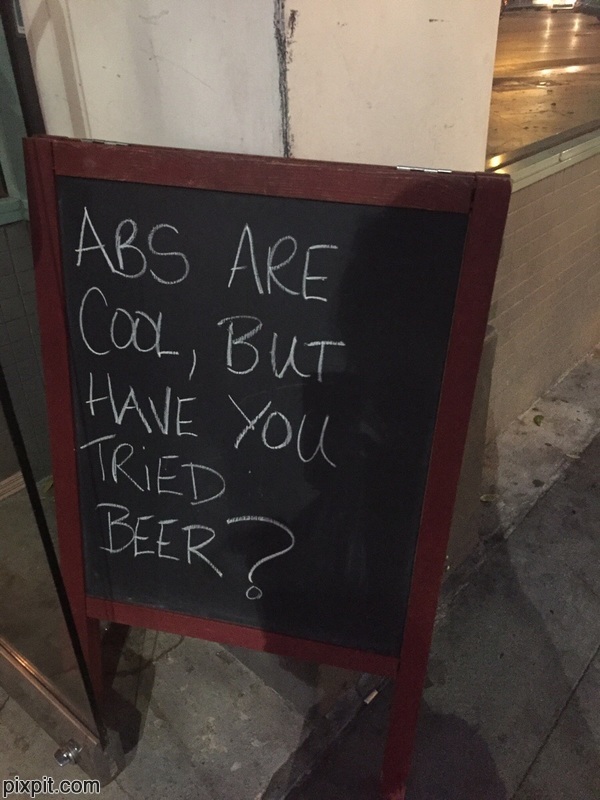 ABS ARE
COOL, BUT
HAVE YOU
TRiED
BEER?
pixpit.com